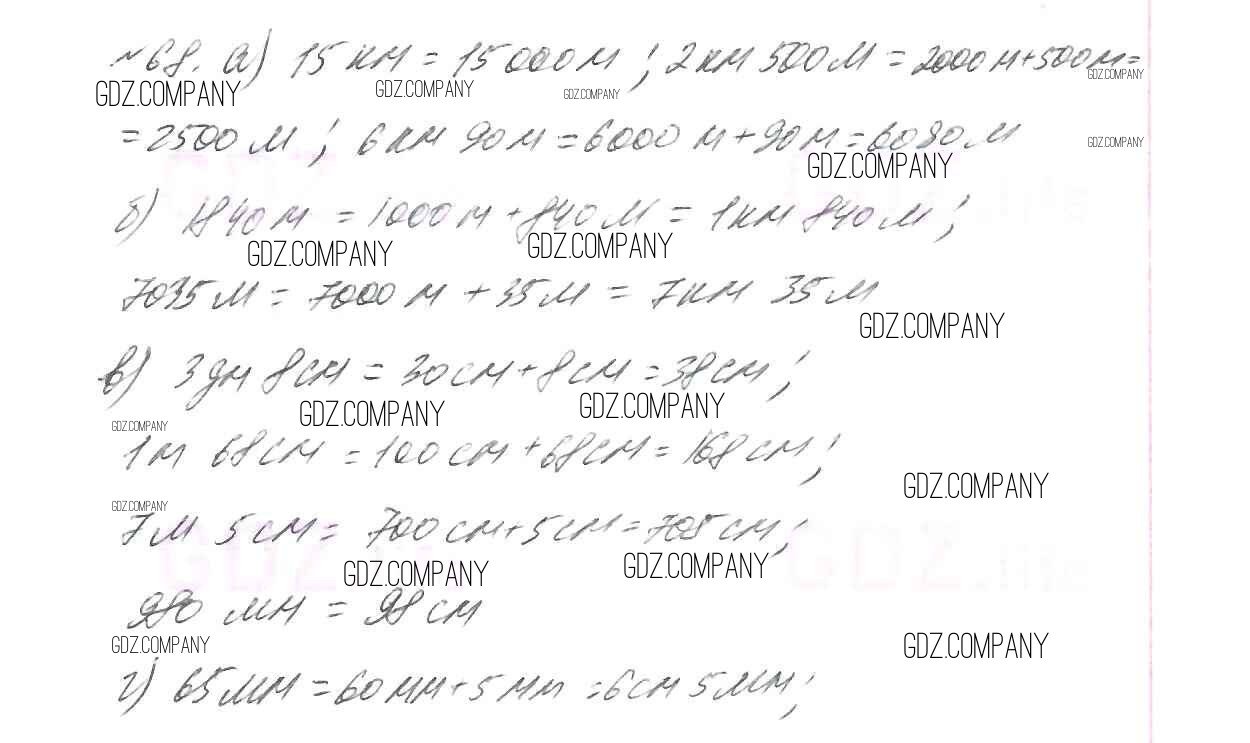 №68. а) 15 км = 15000 м; 2 км 500 м = 2000 м + 500 м =
GDZ.COMPANY GDZ.COMPANY GDZ.COMPANY GDZ.COMPANY
= 2500 м; 6 км 90 м = 6000 м + 90 м = 6090 м
GDZ.COMPANY GDZ.COMPANY
б) 1840 м = 1000 м + 840 м = 1 км 840 м;
GDZ.COMPANY GDZ.COMPANY
7035 м = 7000 м + 35 м = 7 км 35 м
GDZ.COMPANY
в) 3 дм 8 см = 30 см + 8 см = 38 см;
GDZ.COMPANY GDZ.COMPANY GDZ.COMPANY
1 м 68 см = 100 см + 68 см = 168 см;
GDZ.COMPANY
GDZ.COMPANY
7 м 5 см = 700 см + 5 см = 705 см;
GDZ.COMPANY GDZ.COMPANY
980 мм = 98 см
GDZ.COMPANY GDZ.COMPANY
г) 65 мм = 60 мм + 5 мм = 6 см 5 мм;